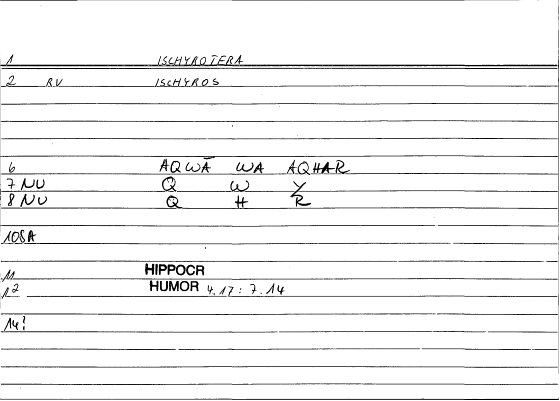 1 ISCHYROTERA
2 RV ISCHYROS
6 AQWĀ WA AQHAR
7 NU Q W Y
8 NU Q H R
10SA
11 HIPPOCR
12 HUMOR 4.17: 7.14
14!